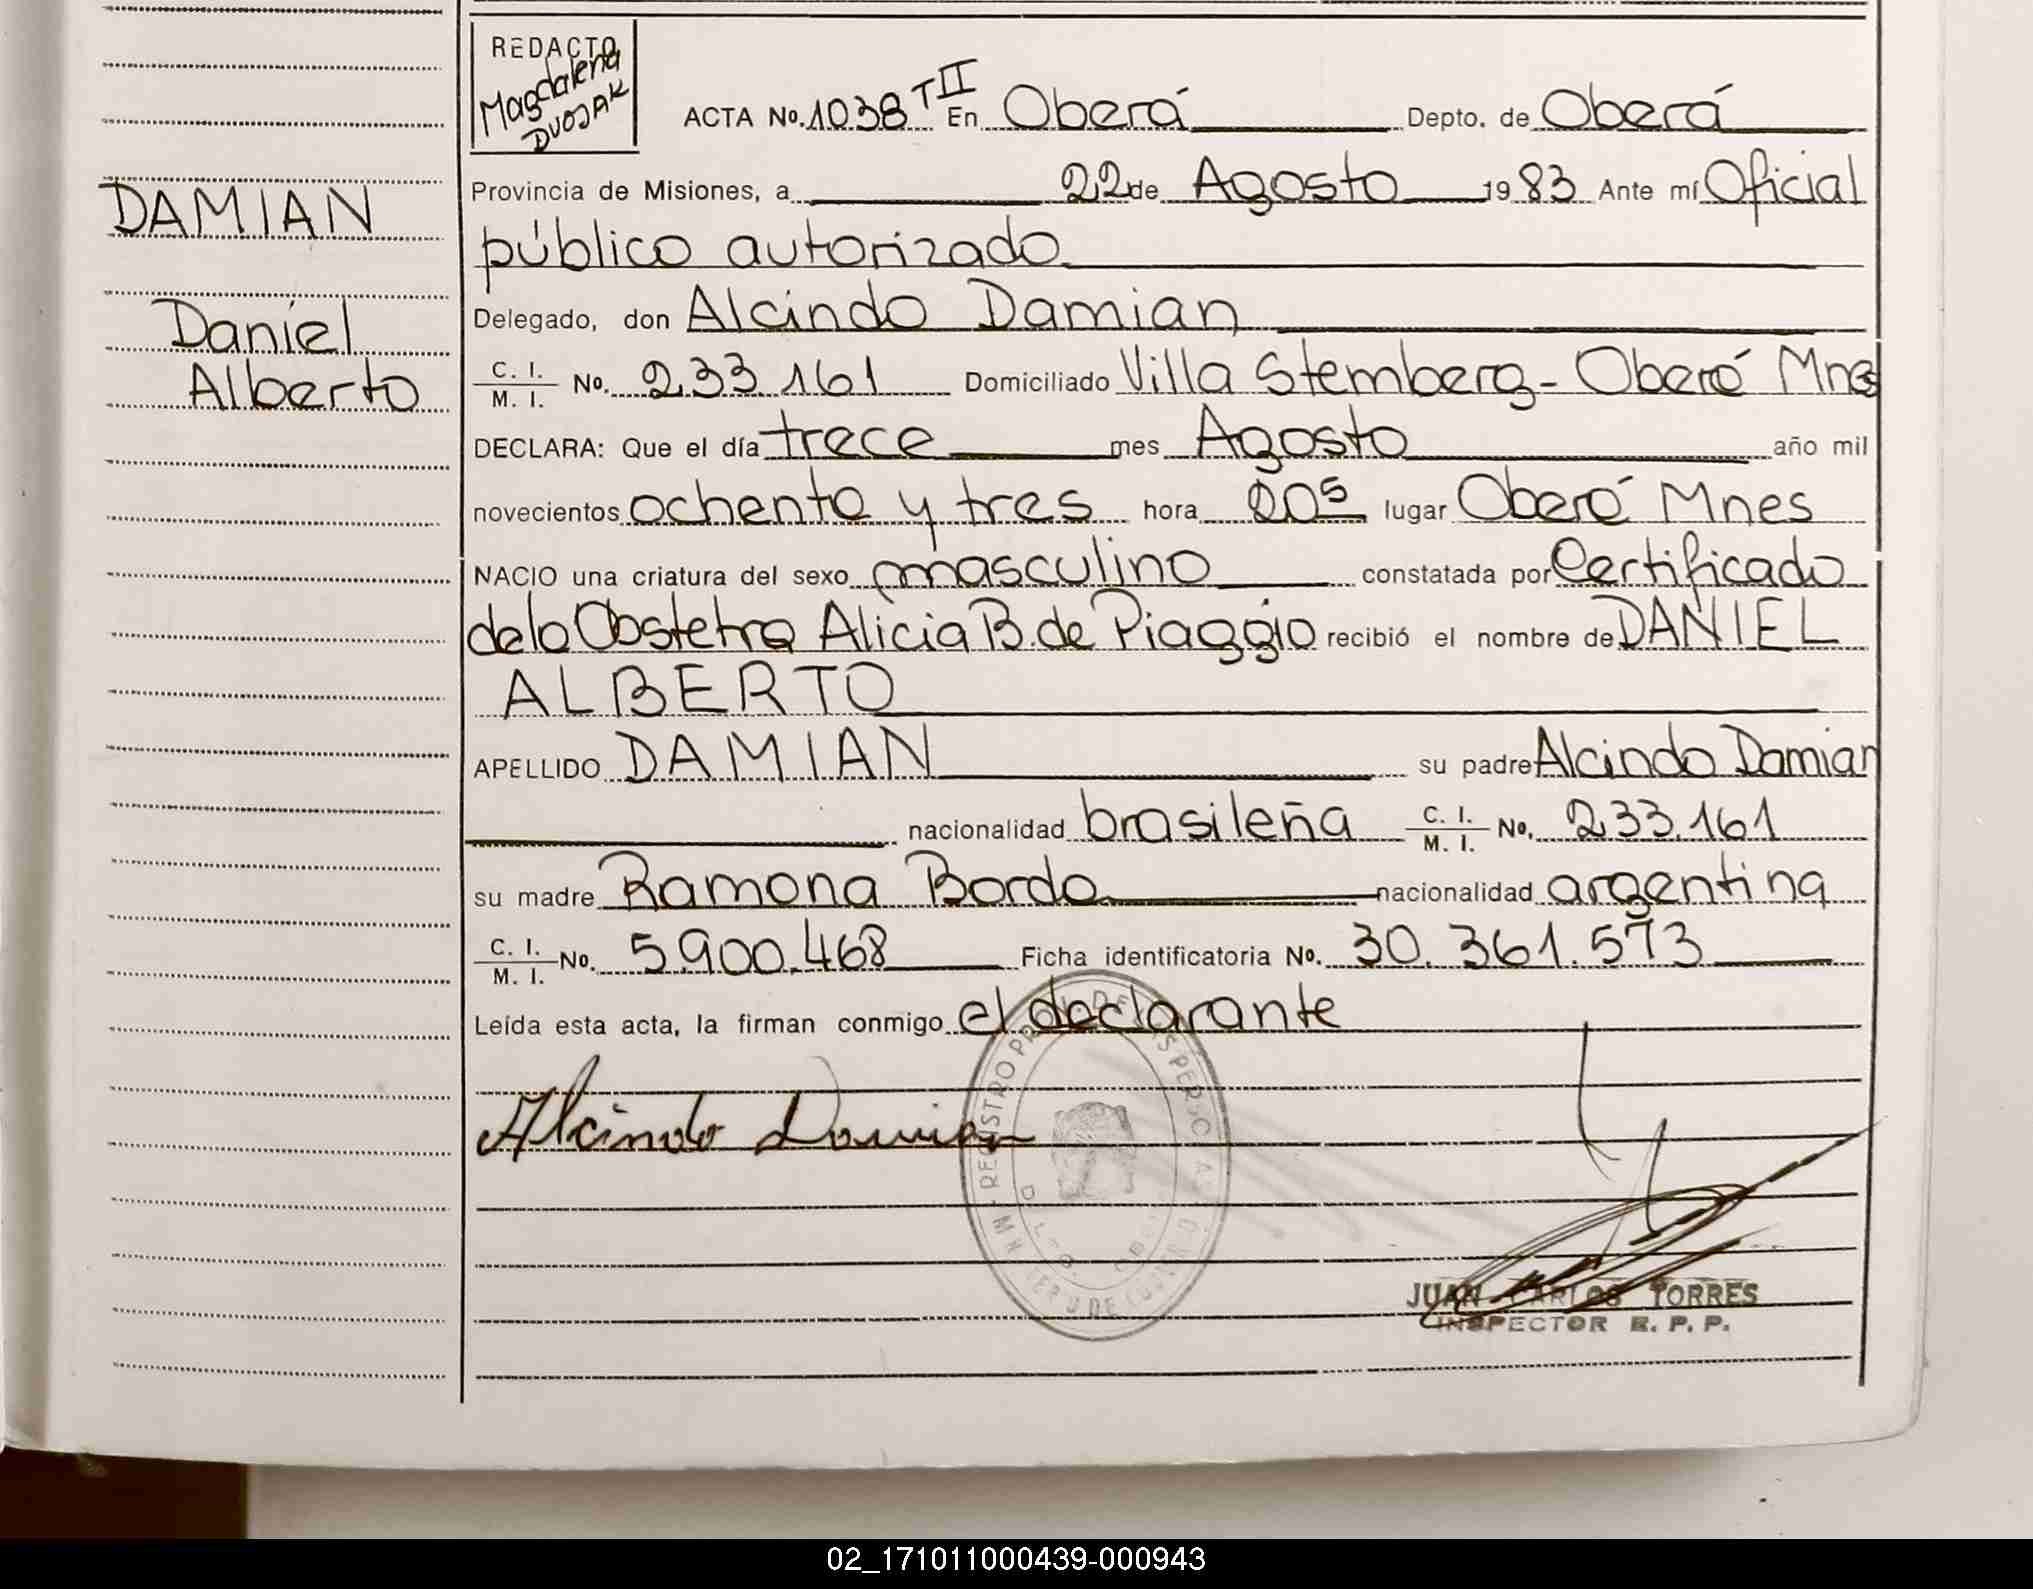 REDACTO
Magdalena
DVOJAK
ACTA No. 1038 T II En Oberá Depto. de Oberá
DAMIAN
Provincia de Misiones, a 22 de Agosto 1983 Ante mí Oficial
público autorizado
Daniel
Alberto
Delegado, don Alcindo Damian
C. I. / M. I. No. 233.161 Domiciliado Villa Stemberg - Oberá Mnes
DECLARA: Que el día trece mes Agosto año mil
novecientos ochenta y tres hora lugar Oberá Mnes
NACIO una criatura del sexo masculino constatada por Certificado
de la Obstetra Alicia B. de Piaggio recibió el nombre de DANIEL
ALBERTO
APELLIDO DAMIAN su padre Alcindo Damian
nacionalidad brasileña C. I. / M. I. No. 233.161
su madre Ramona Borda nacionalidad argentina
C. I. / M. I. No. 5.900.468 Ficha identificatoria No. 30.361.573
Leída esta acta, la firman conmigo el declarante
Alcindo Damian
JUAN CARLOS TORRES
INSPECTOR R. P. P.
02_171011000439-000943